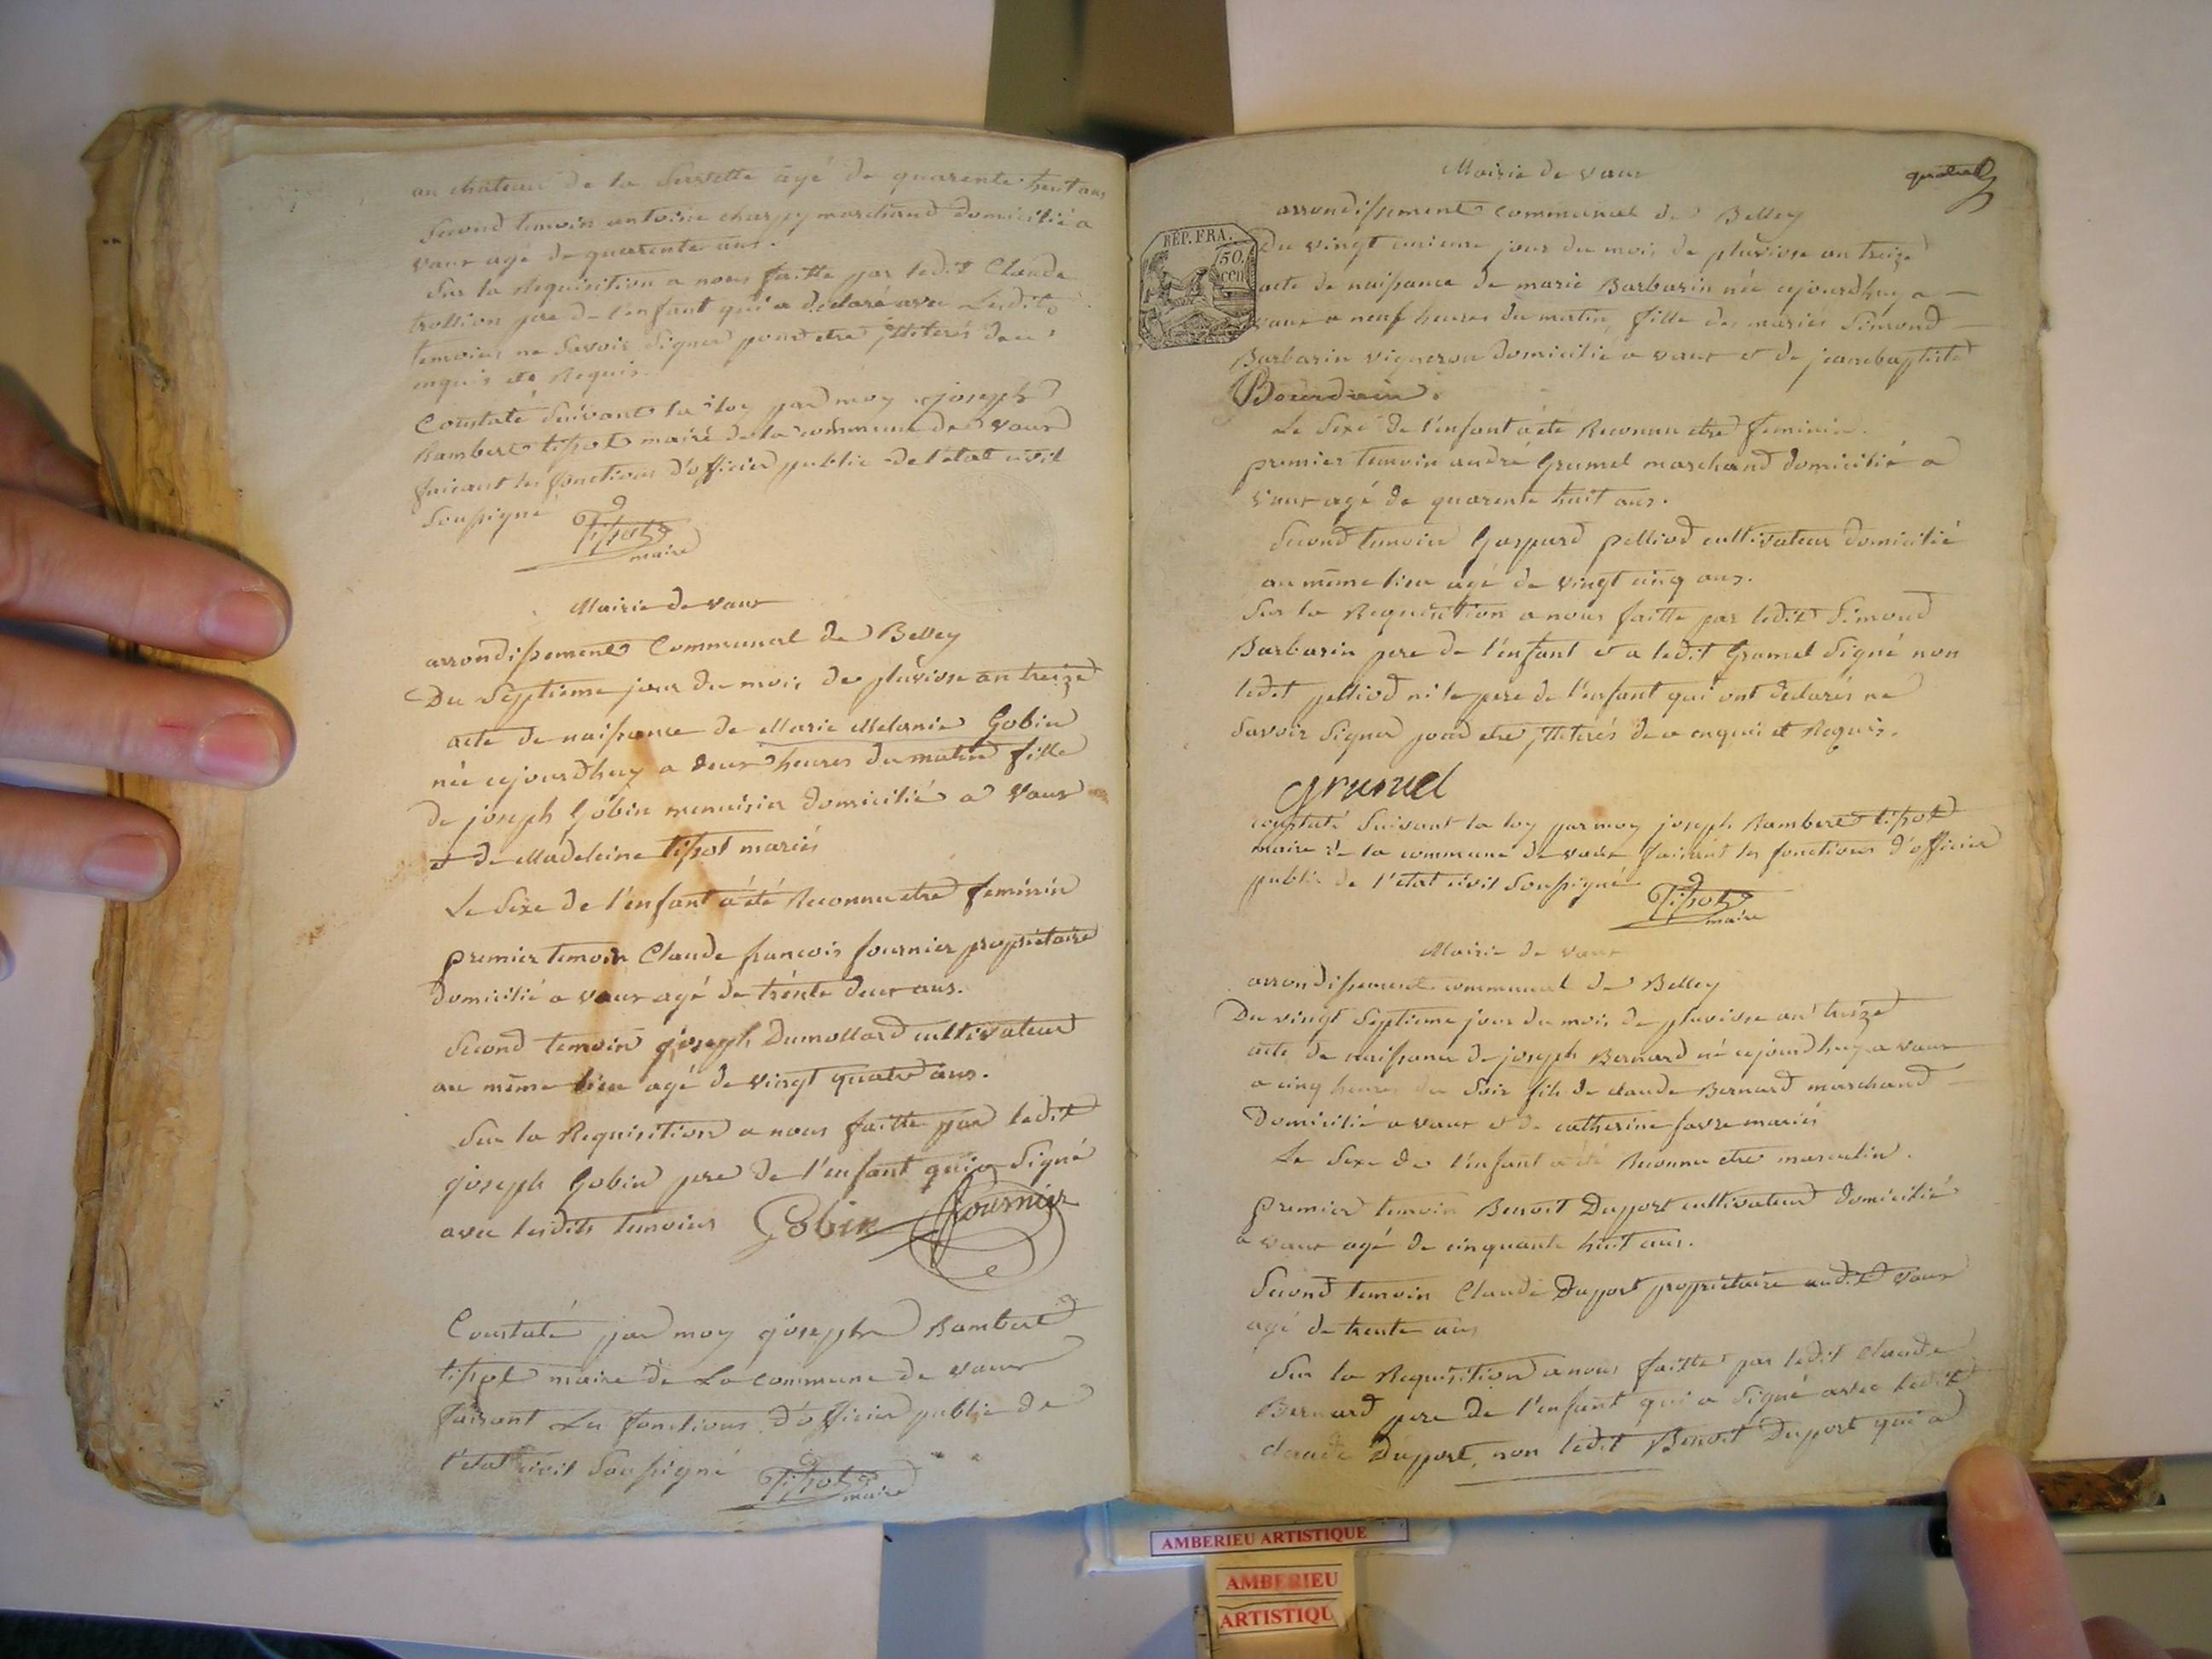 au chateau de la Servette agé de quarente huit ans
Second temoin antoine charpy marchand domicilié a
vaux agé de quarente ans.
Sur la Requisition a nous faitte par ledit Claude
trollion pere de l'enfant qui a declaré avec Lesdits
temoins ne Savoir Signer pour etre illiterés de ce
enquis et Requis.
Constaté Suivant la loy par moy joseph
Rambert tissot maire de la commune de vaux
faisant les fonctions d'officier public de l'etat civil
Soussigné
Tissot
maire
Mairie de vaux
arrondissement Communal de Belley
Du Septieme jour du mois de pluviose an treize
acte de naissance de Marie Melanie Gobin
née cejourdhuy a deux heures du matin fille
de joseph Gobin menuisier domicilié a Vaux
et de Madeleine tissot mariés
Le Sexe de l'enfant a été Reconnu etre feminin
premier temoin Claude francois fournier propriétaire
domicilié a vaux agé de trente deux ans.
Second temoin joseph Dumollard cultivateur
au même lieu agé de vingt quatre ans.
Sur la Requisition a nous faitte par ledit
joseph Gobin pere de l'enfant qui a Signé
avec lesdits temoins Gobin fournier
Constaté par moy joseph Rambert
tissot maire de La commune de vaux
faisant Les fonctions d'officier public de
l'etat civil Soussigné Tissot
maire
Mairie de vaux
arrondissement communal de Belley
RÉP. FRA.
50.
cen
Du vingt unieme jour du mois de pluviose an treize
acte de naissance de marie Barbarin née cejourdhuy a
vaux a neuf heures du matin, fille des mariés Simond
Barbarin vigneron domicilié a vaux et de jeanebaptiste
Bourdin.
Le Sexe de l'enfant a été Reconnu etre feminin.
premier temoin andré Grumel marchand domicilié a
vaux agé de quarente huit ans.
Second temoin Gaspard pelliod cultivateur domicilié
au même lieu agé de vingt cinq ans.
Sur la Requisition a nous faitte par ledit Simond
Barbarin pere de l'enfant et a ledit Grumel Signé non
ledit pelliod ni le pere de l'enfant qui ont declarés ne
Savoir Signer pour etre illiterés de ce enquis et Requis.
Grumel
constaté Suivant la loy par moy joseph Rambert tissot
maire de la commune de vaux faisant les fonctions d'officier
public de l'etat civil Soussigné
Tissot
maire
Mairie de vaux
arrondissement communal de Belley
Du vingt Septieme jour du mois de pluviose an treize
acte de naissance de joseph Bernard né cejourdhuy a vaux
a cinq heures du Soir fils de claude Bernard marchand
Domicilié a vaux et de catherine favre mariés
Le Sexe de l'enfant a été Reconnu etre masculin.
Premier temoin Benoit Duport cultivateur domicilié
a vaux agé de cinquante huit ans.
Second temoin Claude Duport propriétaire audit vaux
agé de trente ans
Sur la Requisition a nous faitte par ledit claude
Bernard pere de l'enfant qui a Signé avec ledit
claude Duport, non ledit Benoit Duport qui a
AMBERIEU ARTISTIQUE
AMBERIEU
ARTISTIQU